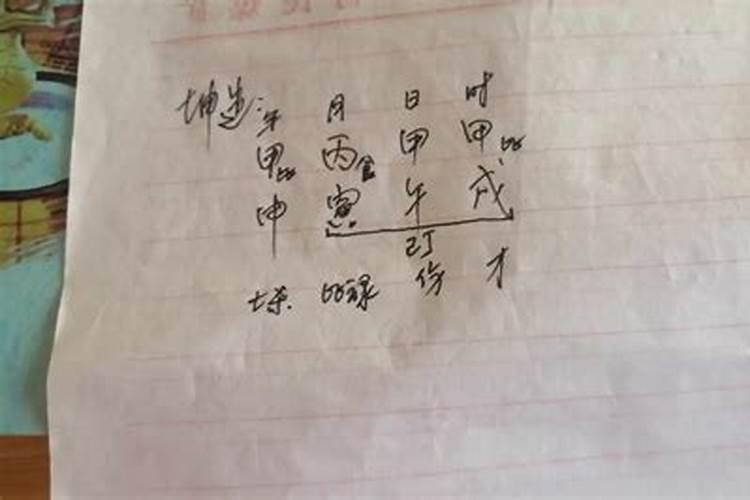 坤造：年 月 日 时
甲比 丙食 甲 甲比
申 寅 午 戌
己丁
杀 比禄 伤 才